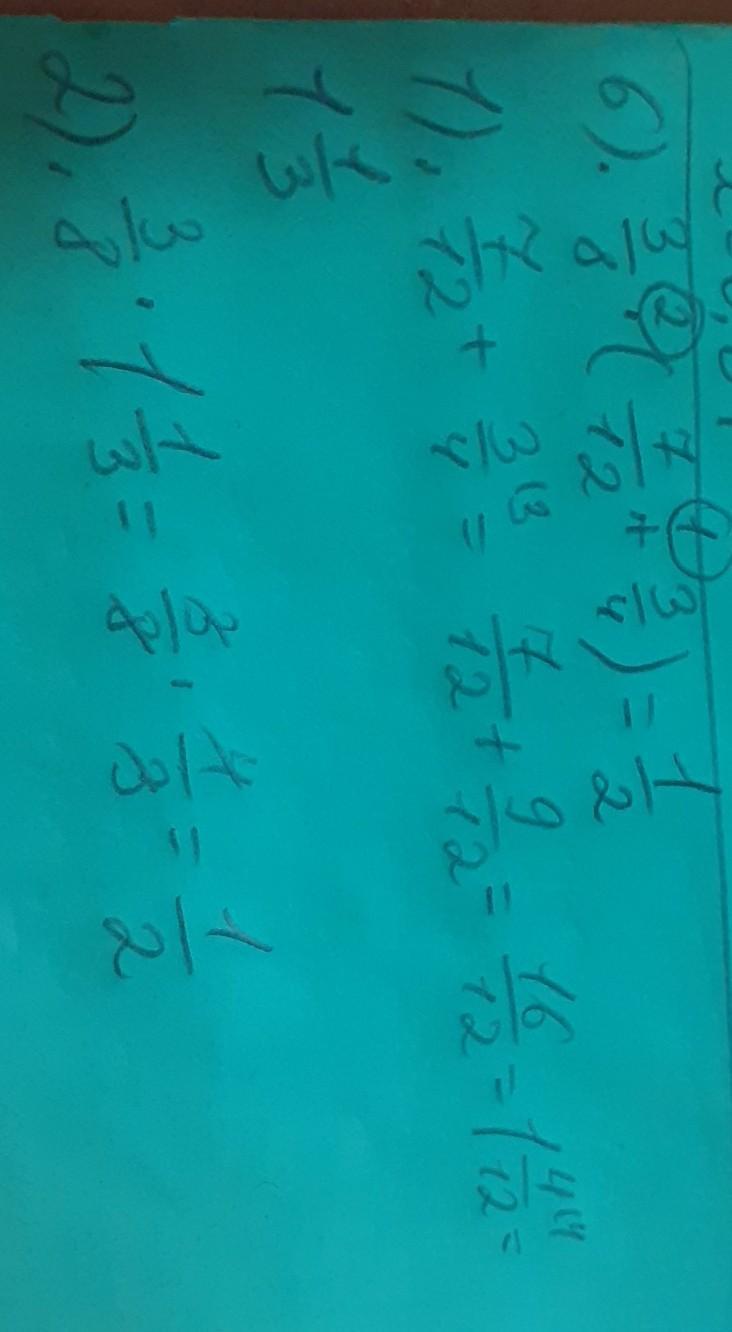 6). 3/8 ·② (7/12 +① 3/4) = 1/2
1). 7/12 + 3/4 |3 = 7/12 + 9/12 = 16/12 = 1 4/12 |4 =
1 1/3
2). 3/8 · 1 1/3 = 3/8 · 4/3 = 1/2